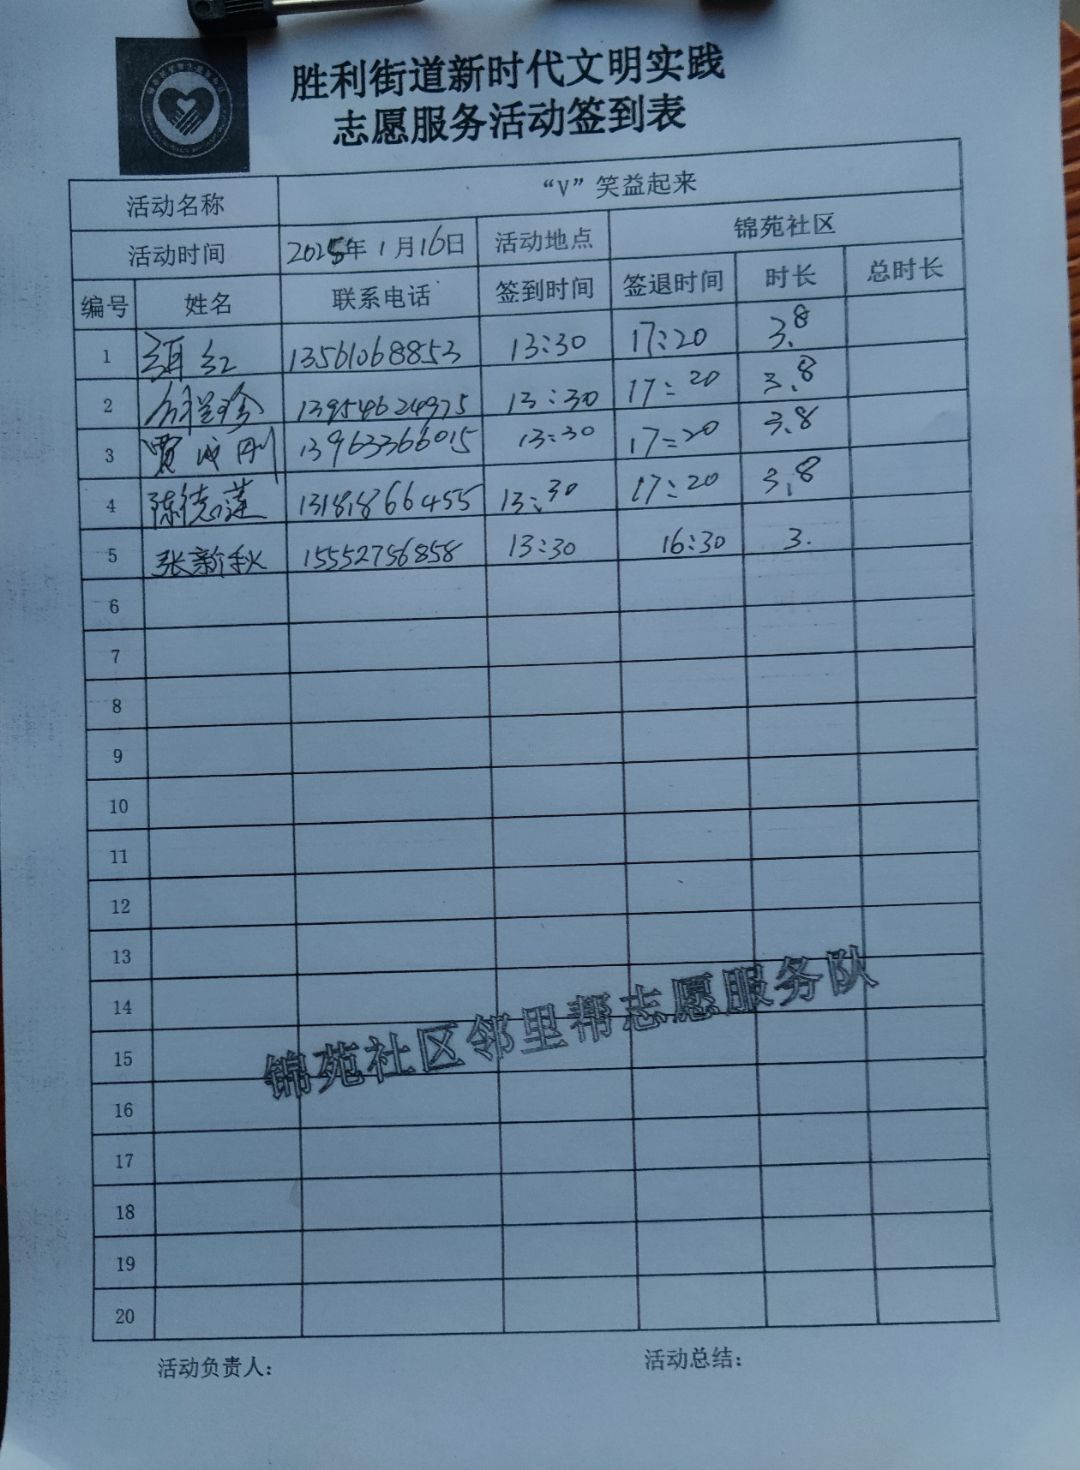 胜利街道新时代文明实践
志愿服务活动签到表
活动名称 “V”笑益起来
活动时间 2025年1月16日 活动地点 锦苑社区
编号 姓名 联系电话 签到时间 签退时间 时长 总时长
1 红 13561068853 13:30 17:20 3.8
2 13954624975 13:30 17:20 3.8
3 贾成刚 13963366015 13:30 17:20 3.8
4 陈德莲 13181866455 13:30 17:20 3.8
5 张新秋 15552756858 13:30 16:30 3.
6
7
8
9
10
11
12
13
14
15
16
17
18
19
20
锦苑社区邻里帮志愿服务队
活动负责人: 活动总结: